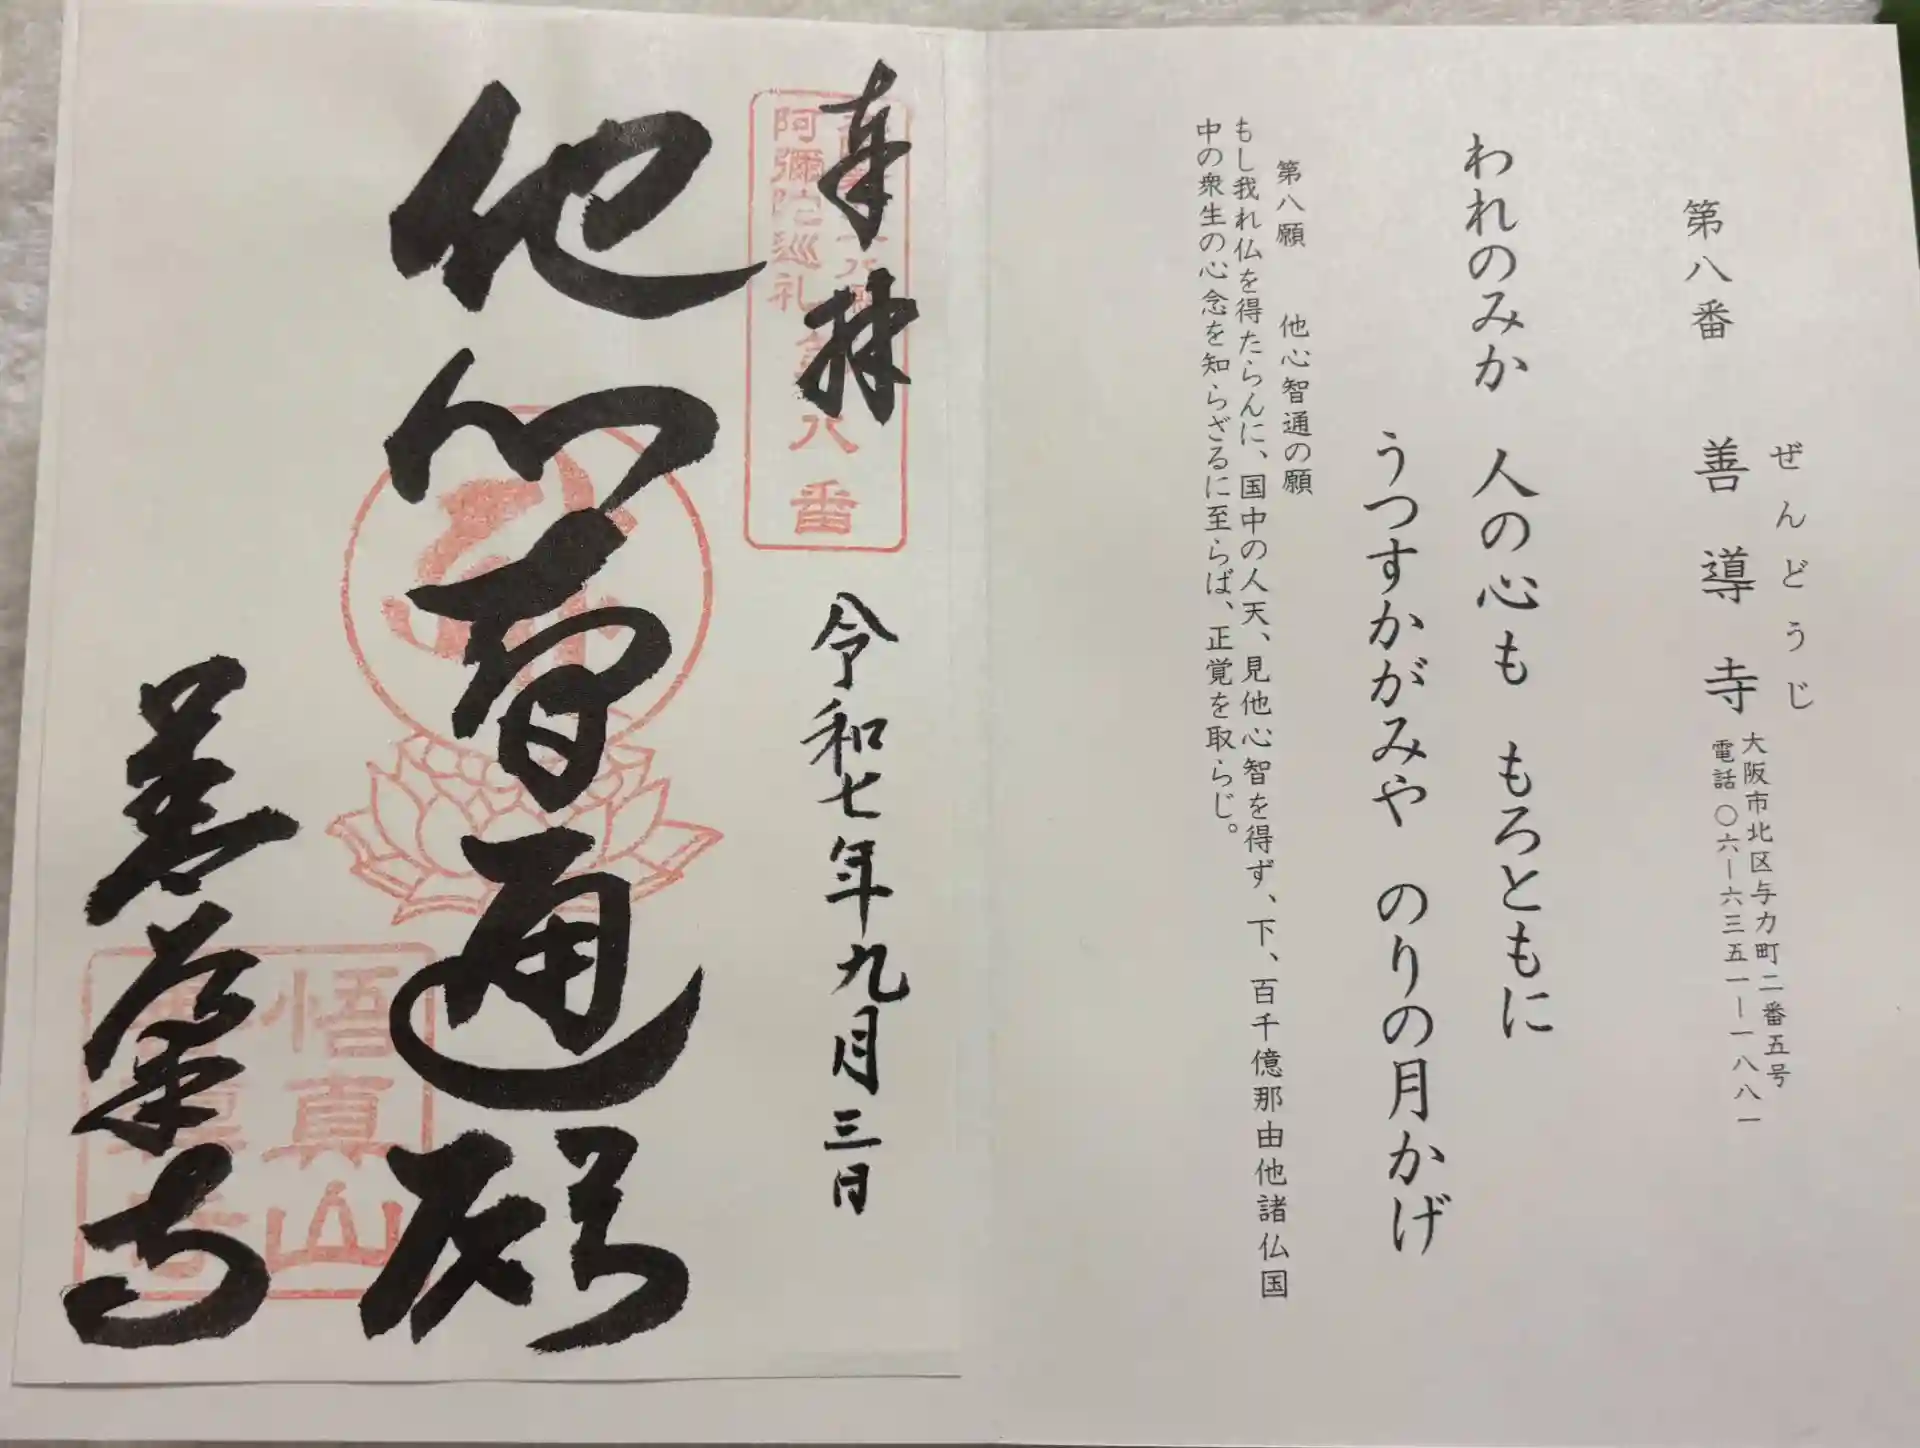 第八番 善導寺
ぜんどうじ
大阪市北区与力町二番五号
電話〇六ー六三五一ー一八八一
われのみか 人の心も もろともに
うつすかがみや のりの月かげ
第八願 他心智通の願
もし我れ仏を得たらんに、国中の人天、見他心智を得ず、下、百千億那由他諸仏国
中の衆生の心念を知らざるに至らば、正覚を取らじ。
奉拝
令和七年九月三日
阿彌陀巡礼
八番
他心智通願
善導寺
悟真山